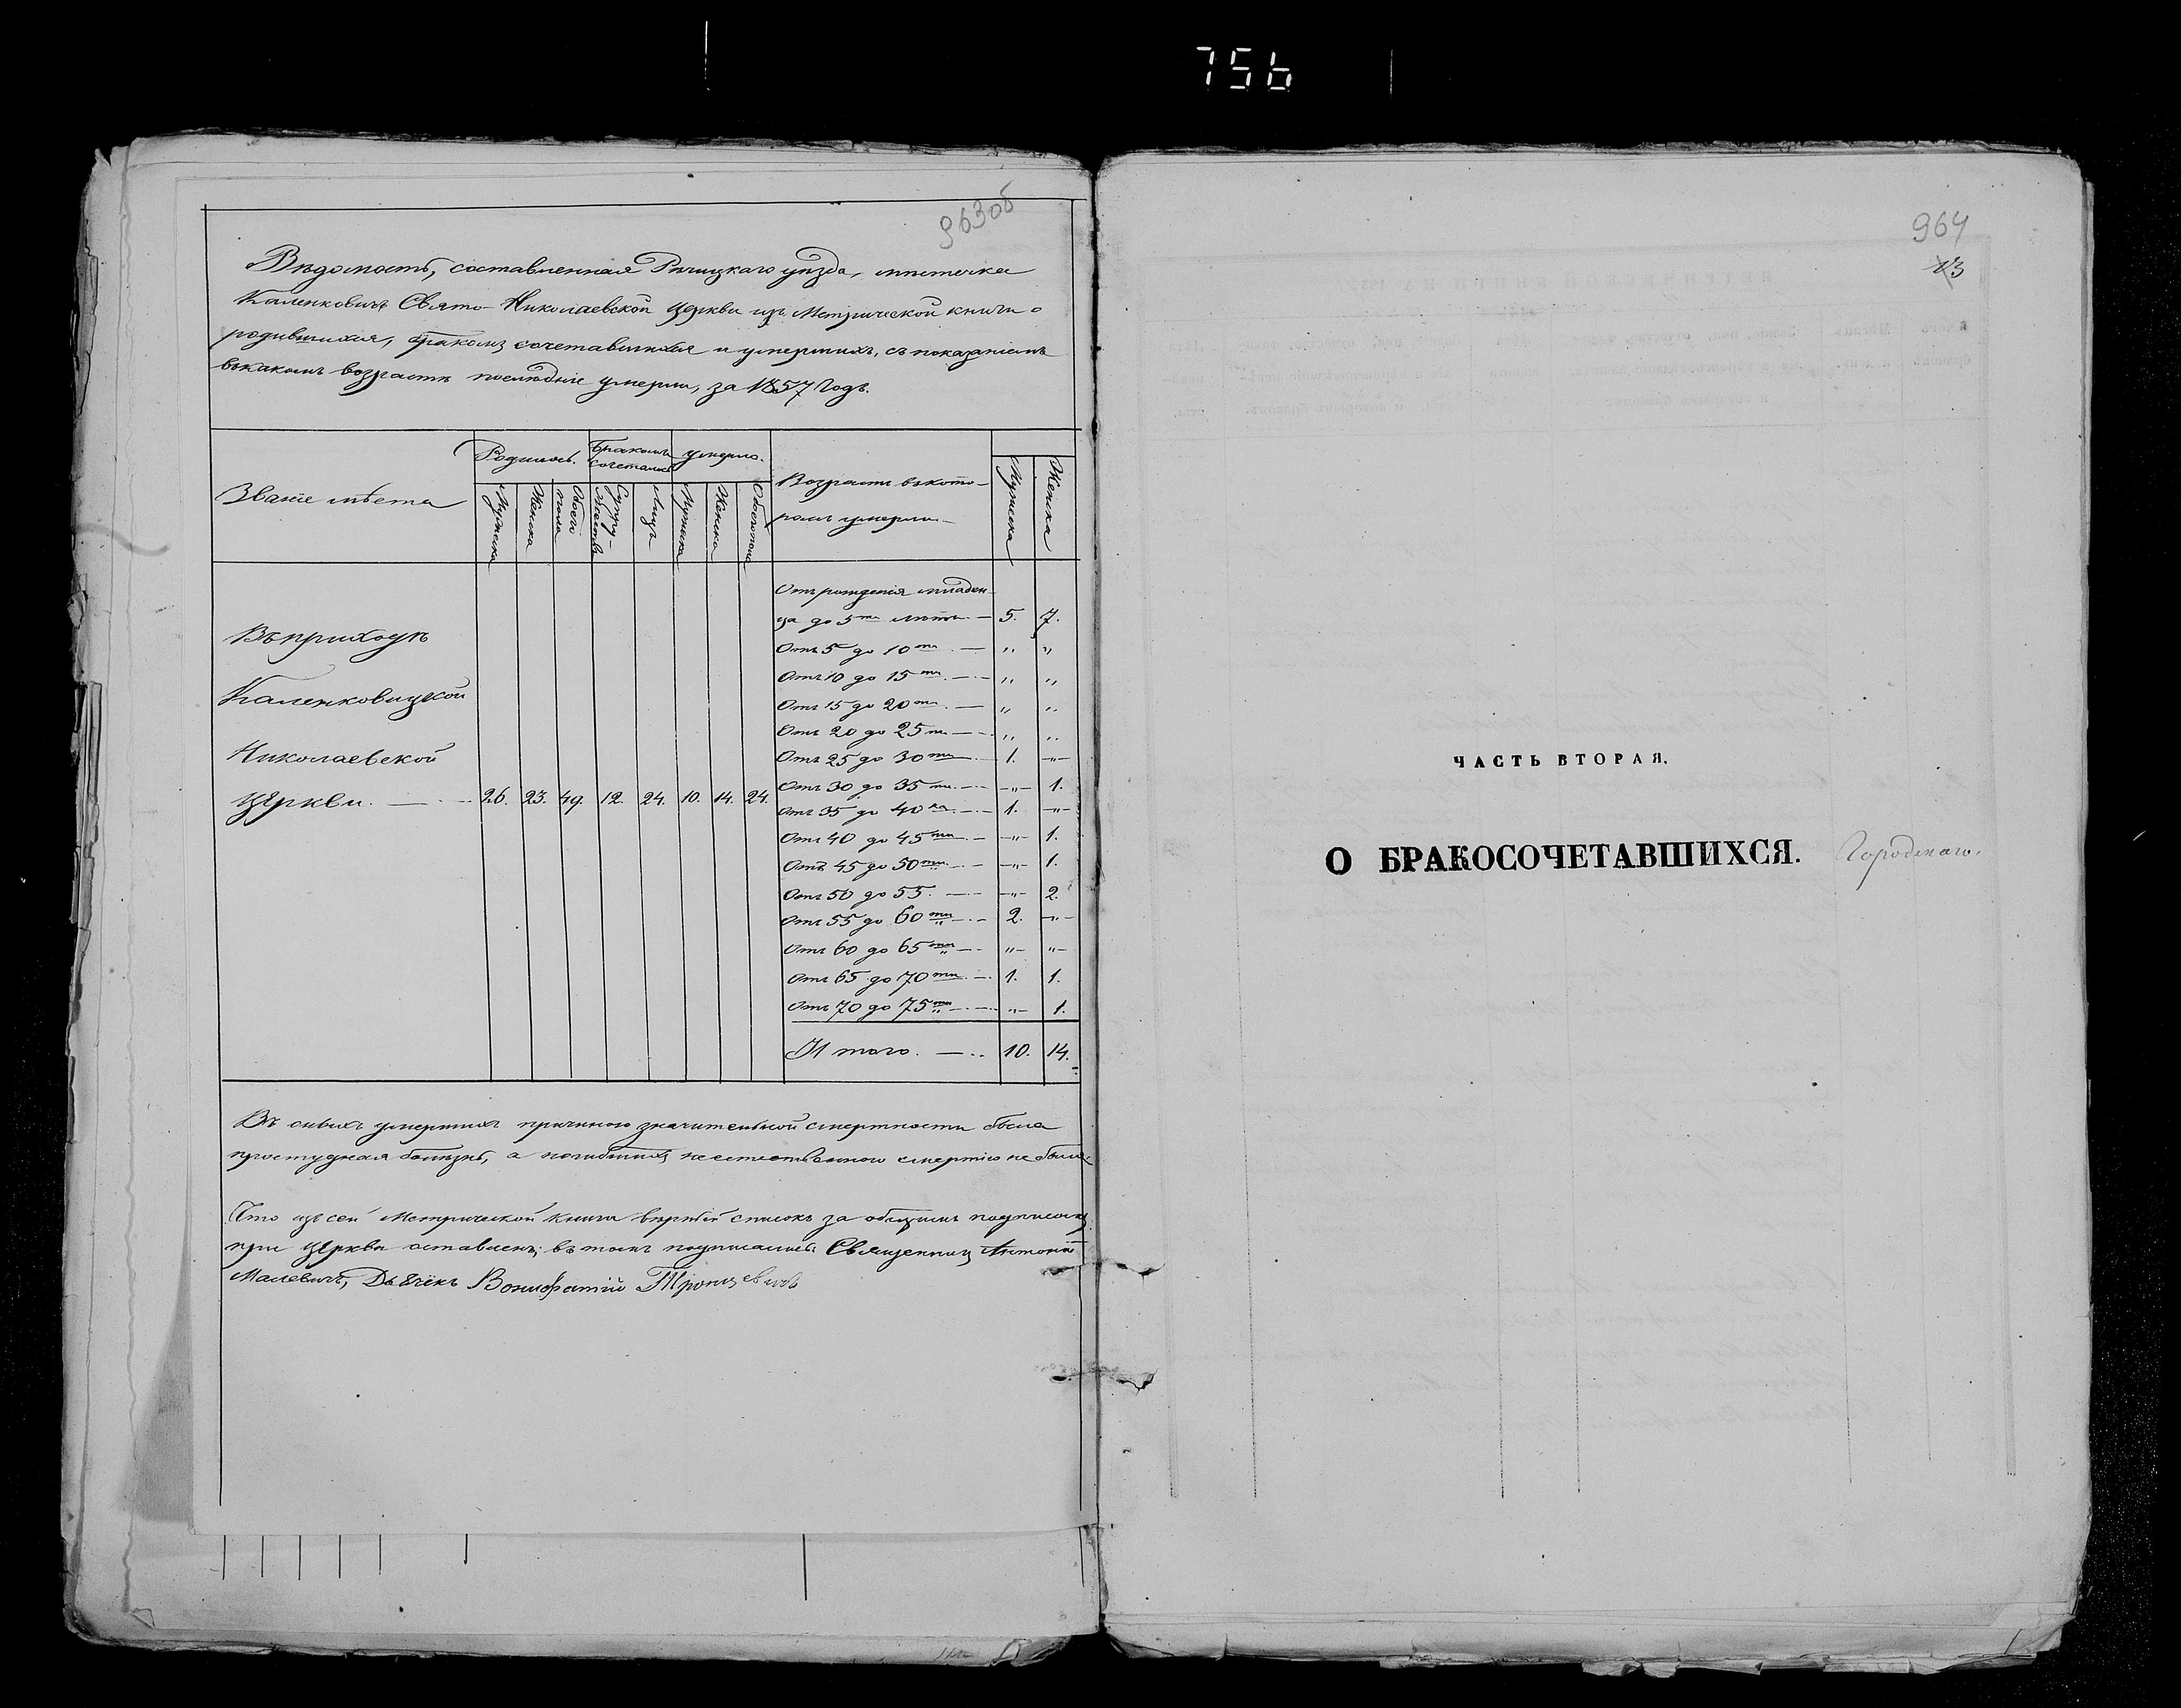 756
963об
Вѣдомость, составленная Рѣчицкаго уѣзда, мѣстечка
Каленковичъ Свято-Николаевской церкви изъ Метрической книги о
родившихся, бракомъ сочетавшихся и умершихъ, съ показаніемъ
въ какомъ возрастѣ послѣдніе умерли, за 1857 Годъ.
Званіе мѣста
Родилось.
Бракомъ
сочеталось
умерло.
Мужеска
Женска
Обоего
пола
Супру-
жествъ
Лицъ
Мужеска
Женска
Обоего пола
Возрастъ въ кото-
ромъ умерли
Мужеска
Женска
Въ приходѣ
Каленковицкой
Николаевской
церкви. 26. 23. 49. 12. 24. 10. 14. 24.
Отъ рожденія младен-
ца до 5ти лѣтъ. — 5. 7.
Отъ 5 до 10ти — „ „
Отъ 10 до 15ти — „ „
Отъ 15 до 20ти — „ „
Отъ 20 до 25ти — „ „
Отъ 25 до 30ти — 1. „
Отъ 30 до 35ти — „ 1.
Отъ 35 до 40ка — 1. „
Отъ 40 до 45ти — „ 1.
Отъ 45 до 50ти — „ 1.
Отъ 50 до 55. — „ 2.
Отъ 55 до 60ти — 2. „
Отъ 60 до 65ти — „ „
Отъ 65 до 70ти — 1. 1.
Отъ 70 до 75ти — „ 1.
И того. — 10. 14.
Въ сихъ умершихъ причиною значительной смертности была
простудная болѣзнь, а погибшихъ неестественною смертію не было
Что изъ сей Метрической книги вѣрный списокъ за общимъ подписомъ
при церкви оставленъ; въ томъ подписались: Священникъ Антоній
Малевичъ, Дьячекъ Вонифатій
964
13
ЧАСТЬ ВТОРАЯ.
О БРАКОСОЧЕТАВШИХСЯ. Городскаго.